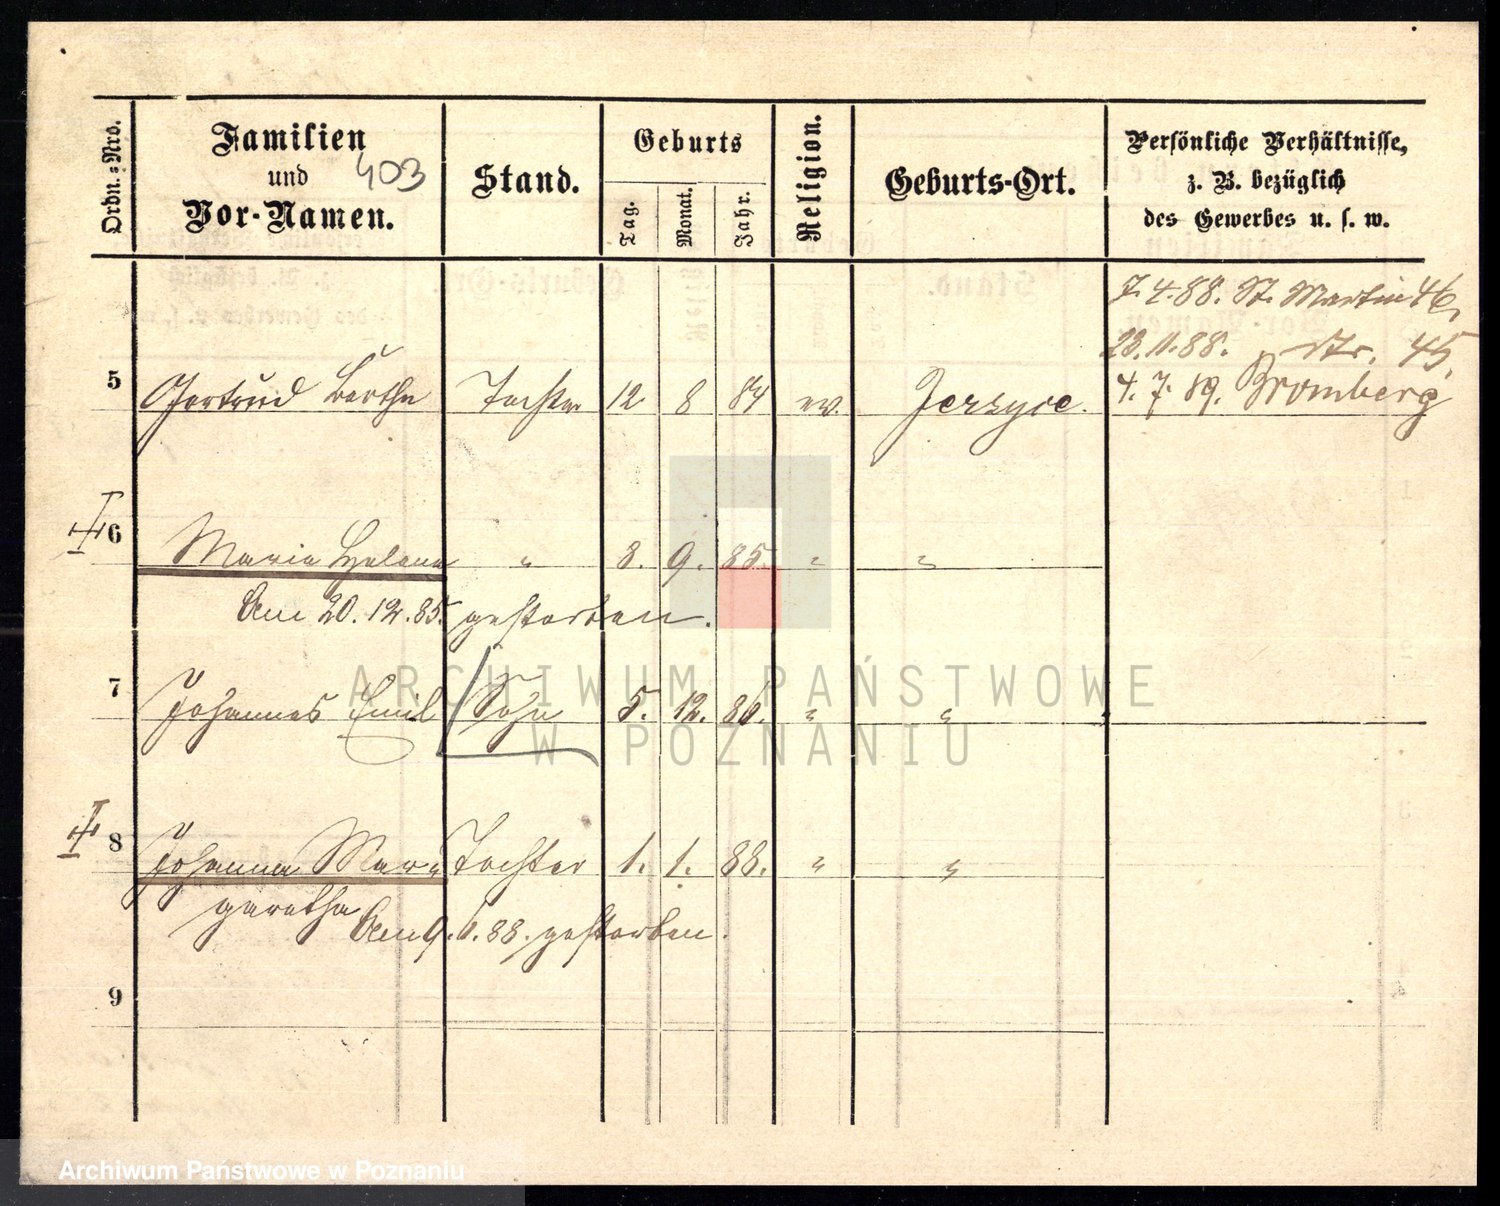 Ordn.-Nro.
Familien
und
Vor-Namen.
403
Stand.
Geburts
Tag.
Monat.
Jahr.
Religion.
Geburts-Ort.
Persönliche Verhältnisse,
z. B. bezüglich
des Gewerbes u. s. w.
7.4.88. St. Martin 46,
23.11.88. dto. 45.
4.7.89. Bromberg
5 Gertrud Bertha Tochter 12 8 84 ev. Jerzyce.
6 Maria Helena " 8. 9. 85. " "
Am 20.12.85. gestorben.
7 Johannes Emil Sohn 5. 12. 86. " "
8 Johanna Mar= Tochter 1. 1. 88. " "
garetha Am 9. 1. 88. gestorben.
9
ARCHIWUM PAŃSTWOWE
W POZNANIU
Archiwum Państwowe w Poznaniu